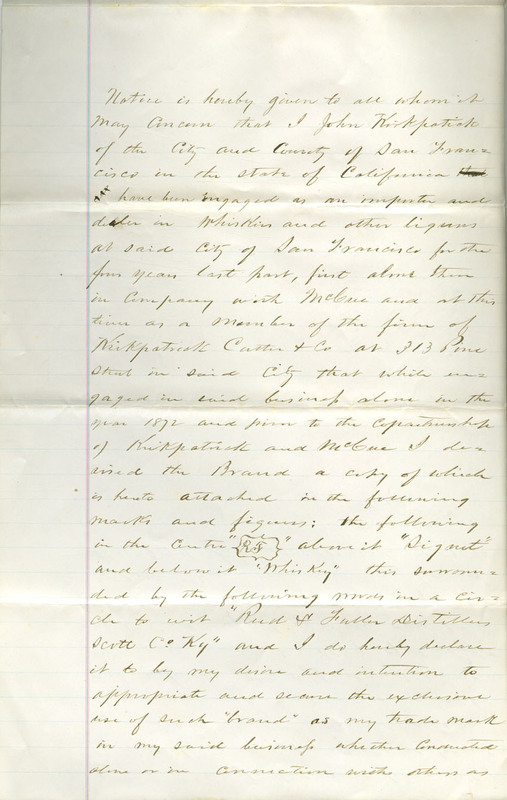 Notice is hereby given to all whom it
May Concern that I John Kirkpatrick
of the City and County of San Fran=
cisco in the state of California
have been Engaged as an importer and
dealer in Whiskies and other liquors
at said City of San Francisco for the
four years last past, first alone then
in Company with McCue and at this
time as a Member of the firm of
Kirkpatrick Cutter & Co at 313 Pine
Street in said City that while en=
gaged in said business alone in the
year 1872 and prior to the copartnership
of Kirkpatrick and McCue I de=
vised the Brand a copy of which
is hereto attached in the following
marks and figures: the following
in the Centre "R&F" above it "Signet"
and below it "Whiskey" this surroun=
ded by the following words in a cir=
cle to wit "Reed & Fuller Distillers
Scott Co Ky" and I do hereby declare
it to by my desire and intention to
appropriate and secure the exclusive
use of such "brand" as my trade mark
in my said business whether Conducted
alone or in connection with others as